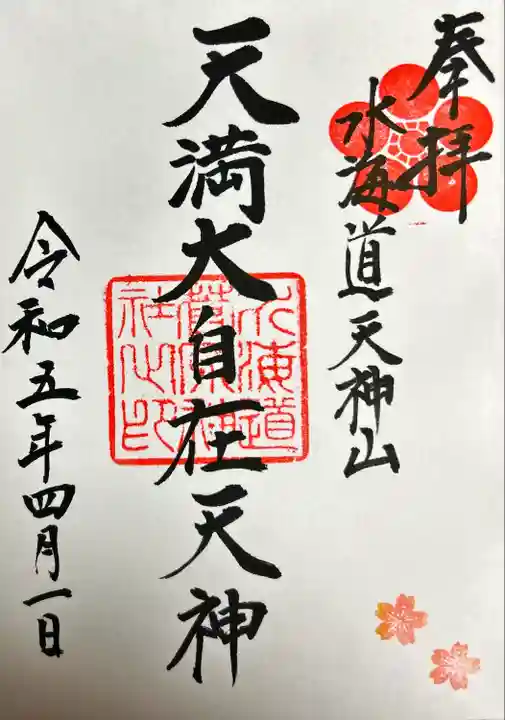 奉拝
水海道天神山
天満大自在天神
水海道
菅原神
社之印
令和五年四月一日